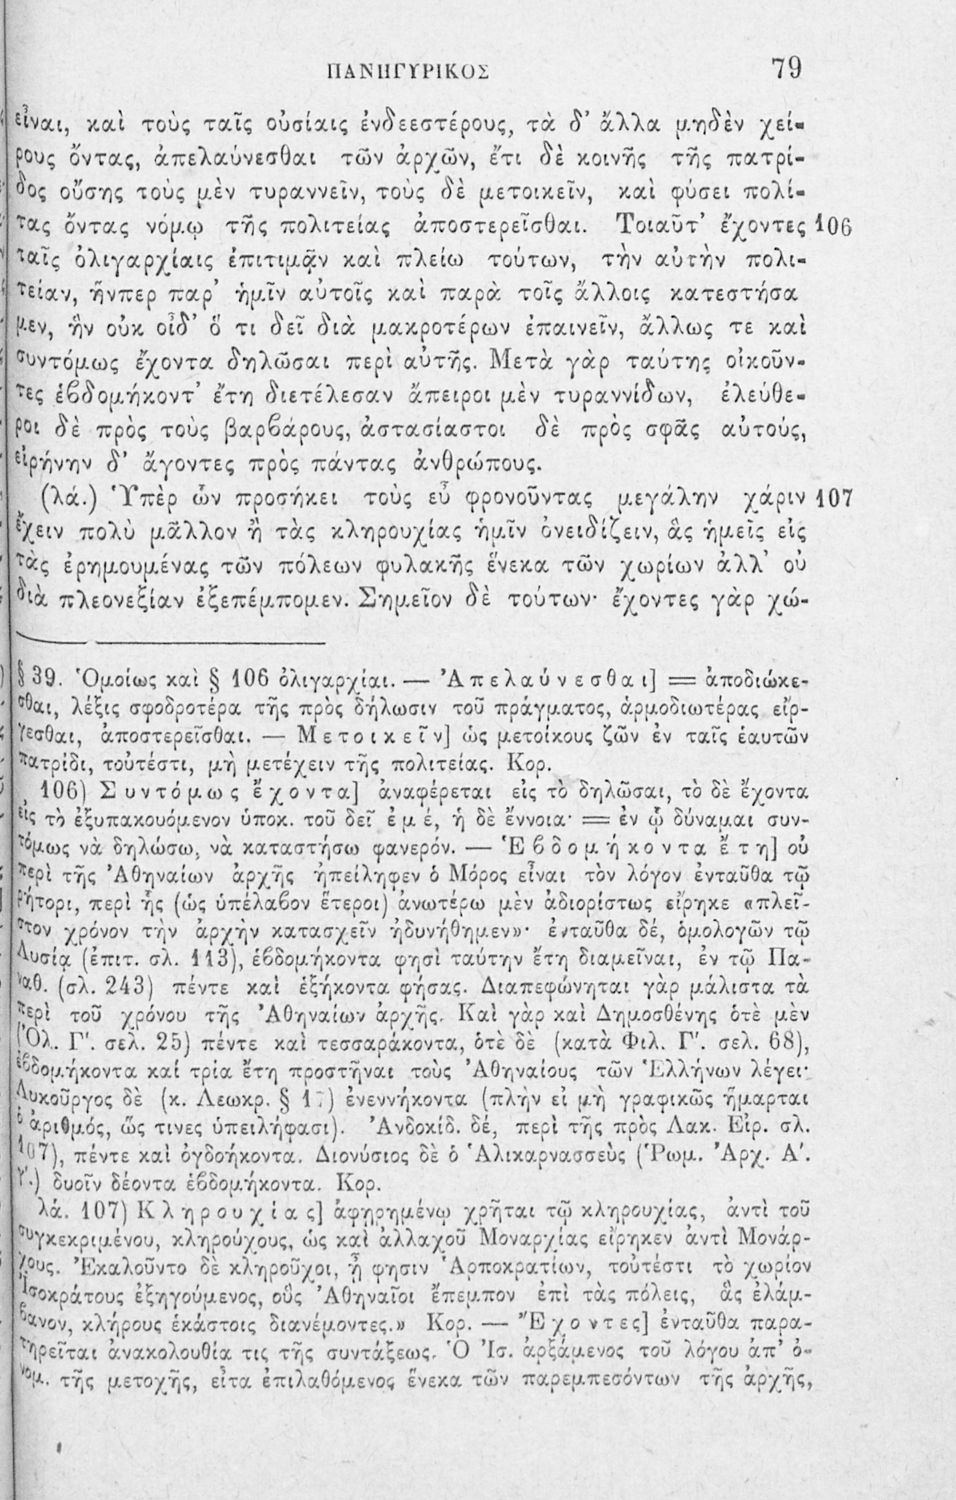 ΠΑΝΗΓΥΡΙΚΟΣ 79
εἶναι, καὶ τοὺς ταῖς οὐσίαις ἐνδεεστέρους, τὰ δ’ ἄλλα μηδὲν χεί-
ρους ὄντας, ἀπελαύνεσθαι τῶν ἀρχῶν, ἔτι δὲ κοινῆς τῆς πατρί-
δος οὔσης τοὺς μὲν τυραννεῖν, τοὺς δὲ μετοικεῖν, καὶ φύσει πολί-
τας ὄντας νόμῳ τῆς πολιτείας ἀποστερεῖσθαι. Τοιαῦτ’ ἔχοντες 106
ταῖς ὀλιγαρχίαις ἐπιτιμᾷν καὶ πλείω τούτων, τὴν αὐτὴν πολι-
τείαν, ἥνπερ παρ’ ἡμῖν αὐτοῖς καὶ παρὰ τοῖς ἄλλοις κατεστήσα
μεν, ἣν οὐκ οἶδ’ ὅ τι δεῖ διὰ μακροτέρων ἐπαινεῖν, ἄλλως τε καὶ
συντόμως ἔχοντα δηλῶσαι περὶ αὐτῆς. Μετὰ γὰρ ταύτης οἰκοῦν-
τες ἑβδομήκοντ’ ἔτη διετέλεσαν ἄπειροι μὲν τυραννίδων, ἐλεύθε-
ροι δὲ πρὸς τοὺς βαρβάρους, ἀστασίαστοι δὲ πρὸς σφᾶς αὐτούς,
εἰρήνην δ’ ἄγοντες πρὸς πάντας ἀνθρώπους.
(λά.) Ὑπὲρ ὧν προσήκει τοὺς εὖ φρονοῦντας μεγάλην χάριν 107
ἔχειν πολὺ μᾶλλον ἢ τὰς κληρουχίας ἡμῖν ὀνειδίζειν, ἃς ἡμεῖς εἰς
τὰς ἐρημουμένας τῶν πόλεων φυλακῆς ἕνεκα τῶν χωρίων ἀλλ’ οὐ
διὰ πλεονεξίαν ἐξεπέμπομεν. Σημεῖον δὲ τούτων· ἔχοντες γὰρ χώ-
§ 39. Ὁμοίως καὶ § 106 ὀλιγαρχίαι. — Ἀπελαύνεσθαι] = ἀποδιώκε-
σθαι, λέξις σφοδροτέρα τῆς πρὸς δήλωσιν τοῦ πράγματος, ἁρμοδιωτέρας εἴρ-
γεσθαι, ἀποστερεῖσθαι. — Μετοικεῖν] ὡς μετοίκους ζῶν ἐν ταῖς ἑαυτῶν
πατρίδι, τοὐτέστι, μὴ μετέχειν τῆς πολιτείας. Κορ.
106) Συντόμως ἔχοντα] ἀναφέρεται εἰς τὸ δηλῶσαι, τὸ δὲ ἔχοντα
εἰς τὸ ἐξυπακουόμενον ὑποκ. τοῦ δεῖ ἐμέ, ἡ δὲ ἔννοια· = ἐν ᾧ δύναμαι συν-
τόμως νὰ δηλώσω, νὰ καταστήσω φανερόν. — Ἑβδομήκοντα ἔτη] οὐ
περὶ τῆς Ἀθηναίων ἀρχῆς ἠπείληφεν ὁ Μόρος εἶναι τὸν λόγον ἐνταῦθα τῷ
ῥήτορι, περὶ ἧς (ὡς ὑπέλαβον ἕτεροι) ἀνωτέρω μὲν ἀδιορίστως εἴρηκε «πλεῖ-
στον χρόνον τὴν ἀρχὴν κατασχεῖν ἠδυνήθημεν»· ἐνταῦθα δέ, ὁμολογῶν τῷ
Λυσίᾳ (ἐπιτ. σλ. 113), ἑβδομήκοντα φησὶ ταύτην ἔτη διαμεῖναι, ἐν τῷ Πα-
ναθ. (σλ. 243) πέντε καὶ ἑξήκοντα φήσας. Διαπεφώνηται γὰρ μάλιστα τὰ
περὶ τοῦ χρόνου τῆς Ἀθηναίων ἀρχῆς. Καὶ γὰρ καὶ Δημοσθένης ὁτὲ μὲν
(Ὀλ. Γ'. σελ. 25) πέντε καὶ τεσσαράκοντα, ὁτὲ δὲ (κατὰ Φιλ. Γ'. σελ. 68),
ἑβδομήκοντα καί τρία ἔτη προστῆναι τοὺς Ἀθηναίους τῶν Ἑλλήνων λέγει·
Λυκοῦργος δὲ (κ. Λεωκρ. § 17) ἐνεννήκοντα (πλὴν εἰ μὴ γραφικῶς ἥμαρται
ὁ ἀριθμός, ὥς τινες ὑπειλήφασι). Ἀνδοκίδ. δέ, περὶ τῆς πρὸς Λακ. Εἰρ. σλ.
107), πέντε καὶ ὀγδοήκοντα. Διονύσιος δὲ ὁ Ἁλικαρνασσεὺς (Ῥωμ. Ἀρχ. Α'.
γ'.) δυοῖν δέοντα ἑβδομήκοντα. Κορ.
λά. 107) Κληρουχίας] ἀφῃρημένῳ χρῆται τῷ κληρουχίας, ἀντὶ τοῦ
συγκεκριμένου, κληρούχους, ὡς καὶ ἀλλαχοῦ Μοναρχίας εἴρηκεν ἀντὶ Μονάρ-
χους. Ἐκαλοῦντο δὲ κληροῦχοι, ᾗ φησιν Ἁρποκρατίων, τοὐτέστι τὸ χωρίον
Ἰσοκράτους ἐξηγούμενος, οὓς Ἀθηναῖοι ἔπεμπον ἐπὶ τὰς πόλεις, ἃς ἐλάμ-
βανον, κλήρους ἑκάστοις διανέμοντες.» Κορ. — Ἔχοντες] ἐνταῦθα παρα-
τηρεῖται ἀνακολουθία τις τῆς συντάξεως. Ὁ Ἰσ. ἀρξάμενος τοῦ λόγου ἀπ’ ὀ-
νομ. τῆς μετοχῆς, εἶτα ἐπιλαθόμενος ἕνεκα τῶν παρεμπεσόντων τῆς ἀρχῆς,